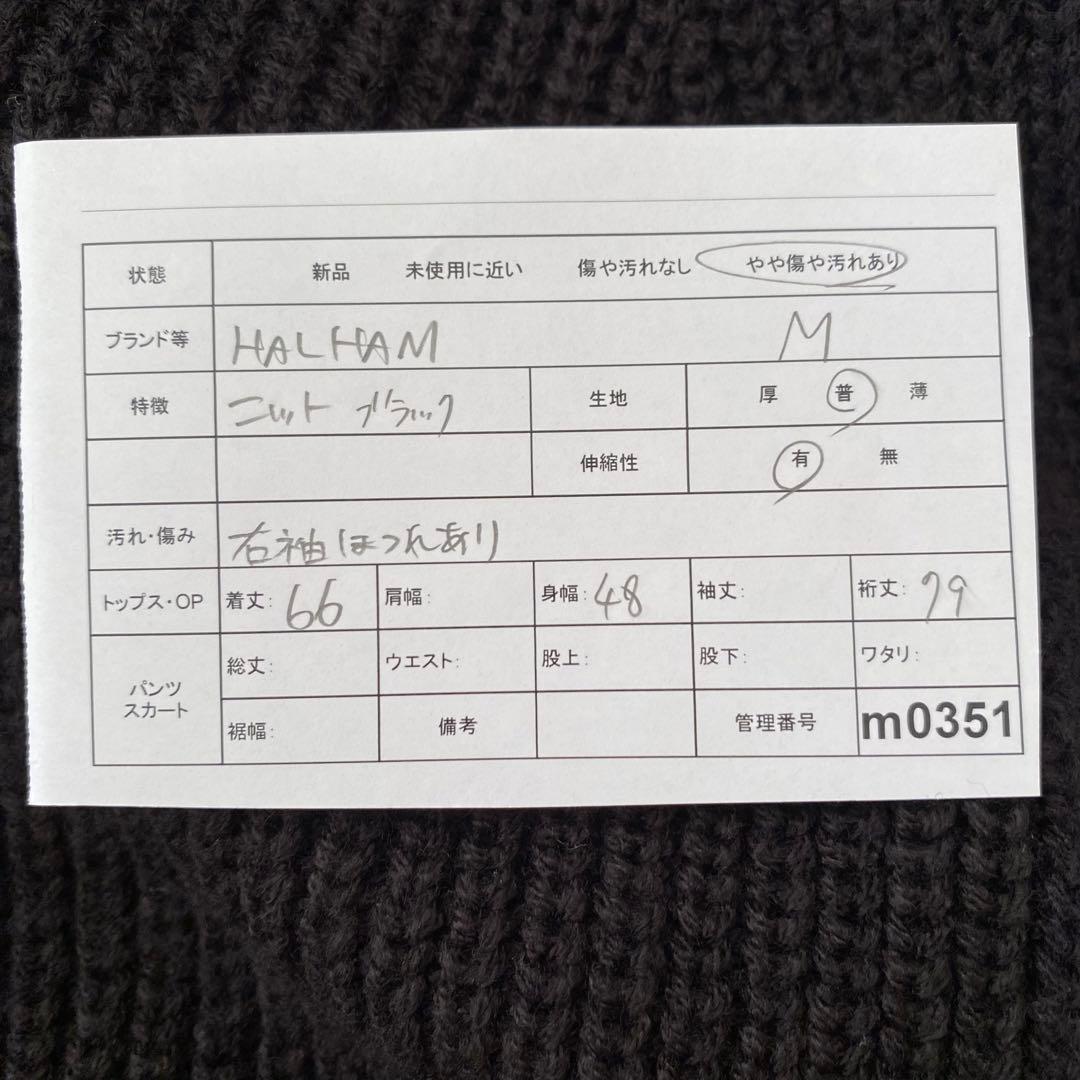 状態 新品 未使用に近い 傷や汚れなし やや傷や汚れあり
ブランド等 HALHAM M
特徴 ニット ブラック 生地 厚 普 薄
伸縮性 有 無
汚れ・傷み 右袖ほつれあり
トップス・OP 着丈: 66 肩幅: 身幅: 48 袖丈: 裄丈: 79
パンツ
スカート
総丈: ウエスト: 股上: 股下: ワタリ:
裾幅: 備考 管理番号 m0351